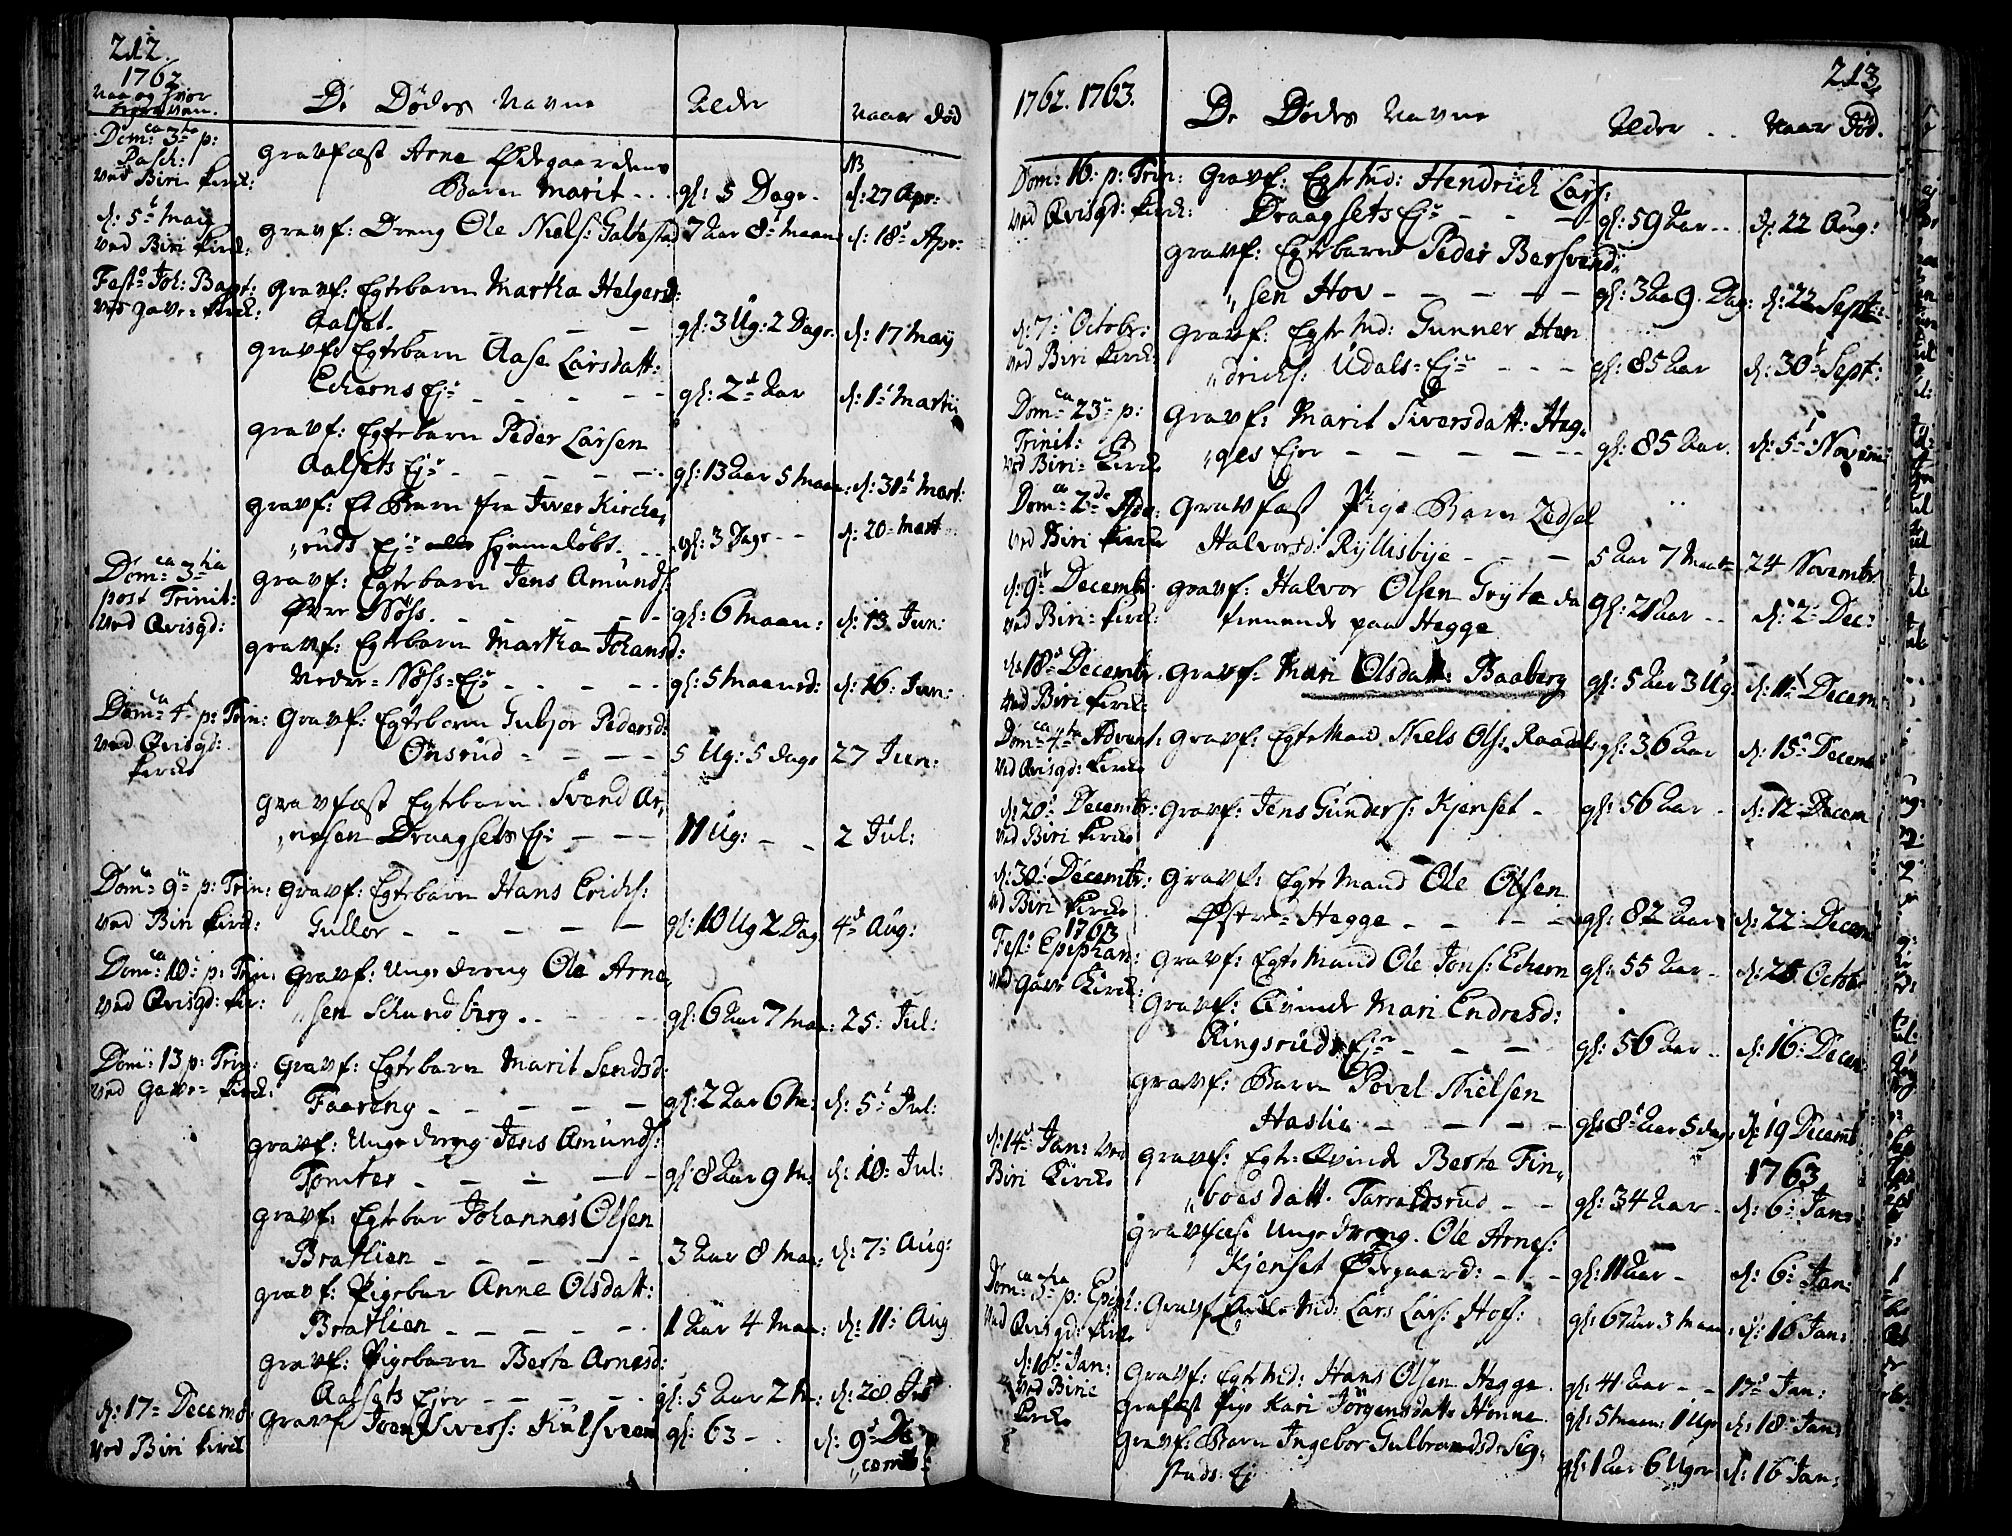 212.
1762
De Dødes Navne
Alder
Naar død
Dom: ca 3tia p:
Pasch:
ved Biri Kirck:
Gravfæst Arne Ødegaardens
Barn Marit - - gl: 5 Dage - d: 27 Apr:
d: 5t May
ved Biri Kirck:
Gravf: Dreng Ole Niels: Galtestad 7 Aar 8t Maan d: 18t Apr:
Festo Joh: Bapt:
Gravf: Egtebarn Martha Helgersd:
Aalset. - - - - gl: 3 Ug: 2 Dage. d: 17t May
Gravf: Egtebarn Aase Larsdatt:
Echerns Ej: - - - - gl: 2 Aar d: 1t Martii
Gravf: Egtebarn Peder Larsen
Aalsets Ej: - - - - gl: 13 Aar 5 Maan: d: 30t Mart:
Gravf: Et Barn fra Iver Kirche„
„ruds Ej: hjemmeløbt. - - gl: 3 Dage - - d: 20 Mart
Dom: ca 3 tia
post Trinit:
ved Qvisgd:
Gravf: Egtebarn Jens Amunds:
Øvre Nøss. - - - - gl: 6 Maan: d: 13 Jun:
Gravf: Egtebarn Martha Johansd:
Nedre-Nøss-Ej: - - - - gl: 5 Maaned: d: 16 Jun:
Dom: ca 4t p: Trin:
ved Qvisgd:
Kircke
Gravf: Egtebarn Gubjor Pedersd:
Onsrud - - - - 5 Ug: 5 dage 27 Jun:
Gravfæst Egtebarn Svend Ar„
„nesen Draagsets Ej: - - - 11 Ug: - - 2 Jul:
Dom: 9 p: Trin:
ved Biri Kirck:
Gravf: Egtebarn Hans Erichs:
Gullor - - - - - gl: 10 Ug 2 Dag 4t Aug:
Dom: ca 10 p: Trin:
ved Qvisgd: Kir:
Gravf: Unge dreng Ole Arne„
„sen Schundberg. - - - gl: 6 Aar 7 Maa: 25: Jul:
Dom: 13 p: Trin:
ved Gave= Kirck:
Gravf: Egtebarn Marit Sendsd:
Faareng - - - - - gl: 2 Aar 6 M: d: 5t Jul:
Gravf: Unge dreng Jens Amunds:
Tomter - - - - - gl: 8 Aar 9 M: d: 10: Jul:
Gravf: Egtebar Johannes Olsen
Bratlien - - - - - 3 Aar 8 Maa: d: 7: Aug:
Gravf: Pigebar Anne Olsdatt:
Bratlien - - - - - 1 Aar 4 Maa: d: 11: Aug
Gravf: Pigebarn Berte Arnesd:
Aalsets Ejer - - - - gl: 5 Aar 2 M: d: 20
d: 17 Decemb:
ved Biri Kirck
Gravf Iver Sivers: Kulsveen gl: 63 - . d: 9t De
„cemb:
213.
1762. 1763.
De Dødes Navne
Alder - -
Naar Død.
Dom: 16: p: Trin:
ved Qvisgd: Kirck:
Gravf: Egte Md: Hendrich Lars:
Draagsets Ej: - - - gl: 59 Aar - - d: 22 Aug:
Gravf: Egtebarn Peder Bersvend„
„sen Hov - - - - - gl: 3 Aa 9. Dag: d: 22 Sept:
d: 7: Octobr:
ved Biri Kirck:
Gravf: Egte Md: Gunner Hen
„drichs: Udals-Ej: - - - gl: 85 Aar d: 30t Sept:
Dom: ca 23 p:
Trinit:
ved Biri= Kircke
Gravf: Marit Siversdatt: Heg„
„ges Ejer - - - - - gl: 85 Aar. d: 5t Novem:
Dom: ca 2 de Adv:
ved Biri Kircke
Gravfæst Pige Barn Zedsel
Halvorsd: Ryllisbye - - - 5 Aar 7 Maan 24 Novembr
d: 9t Decembr
ved Biri= Kirck:
Gravf: Halvor Olsen Gryte da
tienende paa Hegge gl: 21 Aar - - d: 2 Dec:
d: 18t Decembr.
ved Biri Kirck:
Gravf: Mari Olsdatt: Baaberg gl: 5 Aar 3 Ug: d: 11t Decem
Dom: ca 4 te Advent:
ved Qvisgd: Kircke
Gravf: Egte Mand Niels Ols: Raadals: gl: 36 Aar d: 15t Decemb
d: 20t Decembr:
ved Biri Kircke
Gravf: Jens Gunders: Kjenset - gl: 56 Aar - d: 12 Decem
d: 30t Decembr:
ved Biri Kircke
Gravf: Egte Mand Ole Olsen
Østre= Hegge - - - - gl: 82 Aar d: 22 Decem
1763
Festo Epiphan:
ved Gave Kirck:
Gravf: Egte Mand Ole Jons: Echern gl: 55 Aar - d: 25 Octobr
Gravf: Qvinde Mari Endresd:
Ringsruds Ejer - - - gl: 56 Aar - - d: 16 Decem
Gravf: Barn Povel Nielsen
Haslie - - - - - gl: 8t Aar 5 dage d: 19 Decemb
1763
d: 14t Jan: ved
Biri Kircke
Gravf: Egte-Qvinde Berte Fin„
„boes datt. Tarraldsrud - - gl: 34 Aar - d: 6: Jan:
Gravfæst Unge Dreng. Ole Arnes:
Kjenset Ødegaard: - - - gl: 11 Aar - d: 6: Jan:
Dom: ca 3 tia p: Epiph:
ved Qvisgd: Kircke
Gravf Md: Lars Lars: Hofs: gl: 67 Aar 3 Maan: d: 16 Jan:
d: 18t Jan:
ved Birie
Kircke
Gravf: Egte Md: Hans Olsen Hegge. gl: 41 Aar - - 17t Jan:
Grafæst Pige Kari Jörgensdatt: Hønne gl: 5 Maan: 1 Uge d: 18 Jan:
Gravf: Barn Ingebor Gulbrandsd: Sig„
stads Ej: gl: 1 Aar 6 Uger d: 16 Jan: